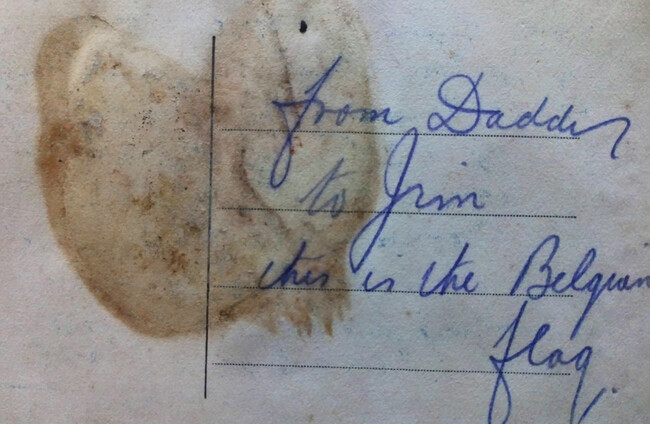 from Daddy
to Jim
this is the Belgian
flag.